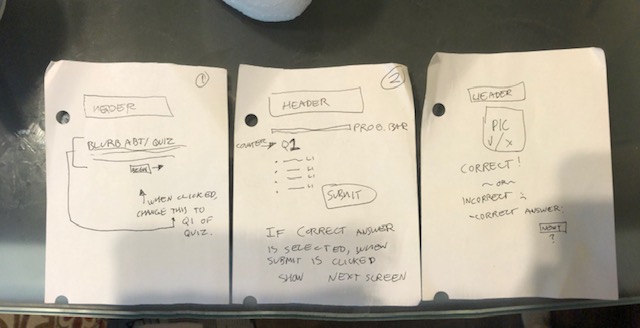 1
HEADER
BLURB ABT/QUIZ
BEGIN
WHEN CLICKED,
CHANGE THIS TO
Q1 OF
QUIZ.
2
HEADER
PROG. BAR
COUNTER Q1
LI
LI
LI
LI
SUBMIT
IF CORRECT ANSWER
IS SELECTED, WHEN
SUBMIT IS CLICKED
SHOW NEXT SCREEN
HEADER
PIC
√/X
CORRECT!
~OR~
INCORRECT :
~CORRECT ANSWER:
NEXT
?